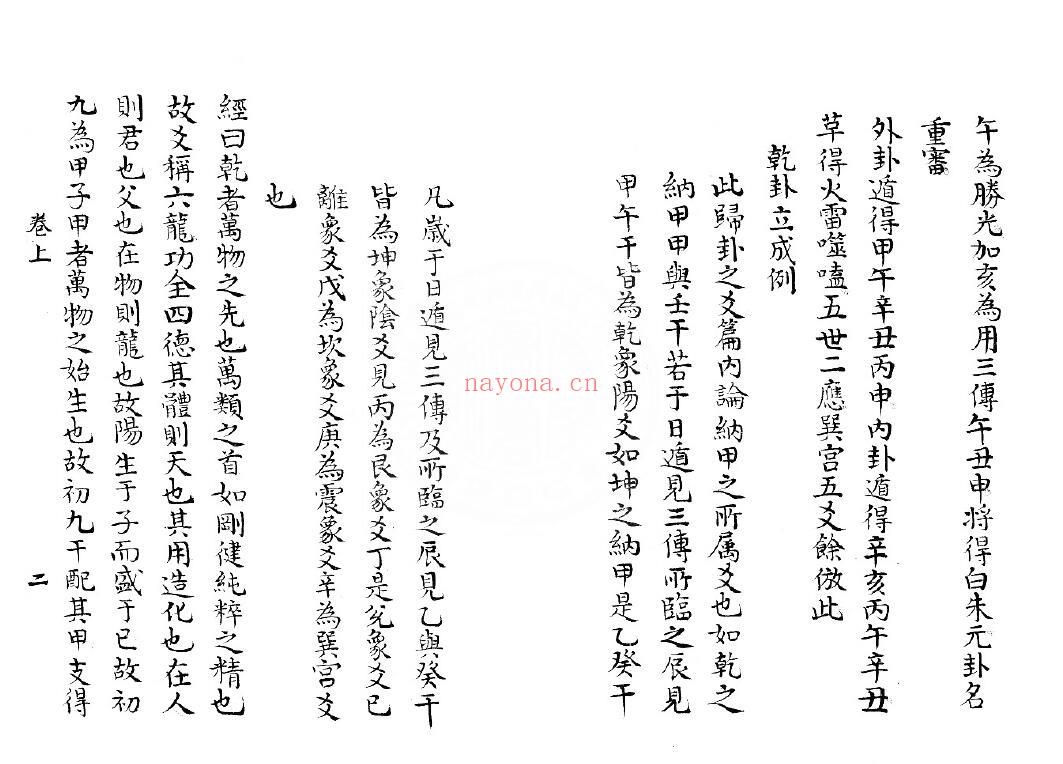 午為勝光加亥為用三傳午丑申将得白朱元卦名
重審
外卦遁得甲午辛丑丙申内卦遁得辛亥丙午辛丑
草得火雷噬嗑五世二應巽宫五爻餘倣此
乾卦立成例
此歸卦之爻篇内論納甲之所属爻也如乾之
納甲甲與壬干若于日遁見三傳所臨之辰見
甲午干皆為乾象陽爻如坤之納甲是乙癸干
凡歲于日遁見三傳及所臨之辰見乙與癸干
皆為坤象陰爻見丙為艮象爻丁是兑象爻已
離象爻戊為坎象爻庚為震象爻辛為巽宫爻
也
經曰乾者萬物之先也萬類之首如剛健純粹之精也
故爻稱六龍功全四德其體則天也其用造化也在人
則君也父也在物則龍也故陽生于子而盛于已故初
九為甲子甲者萬物之始生也故初九干配其甲支得
卷上
二
nayona.cn